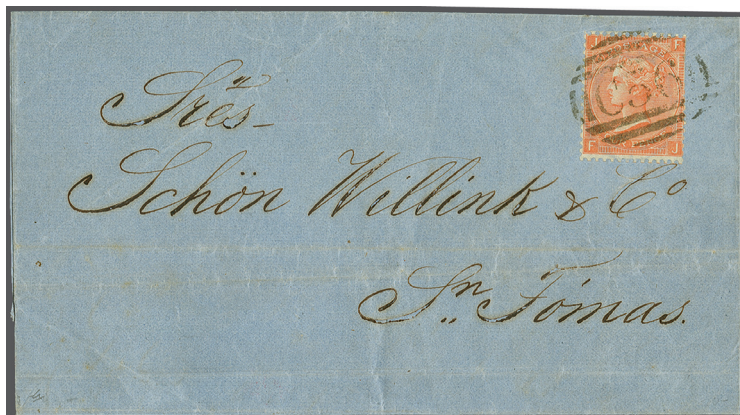 Sres
Schön Willink & Co
Sn Tómas.
J F
F J